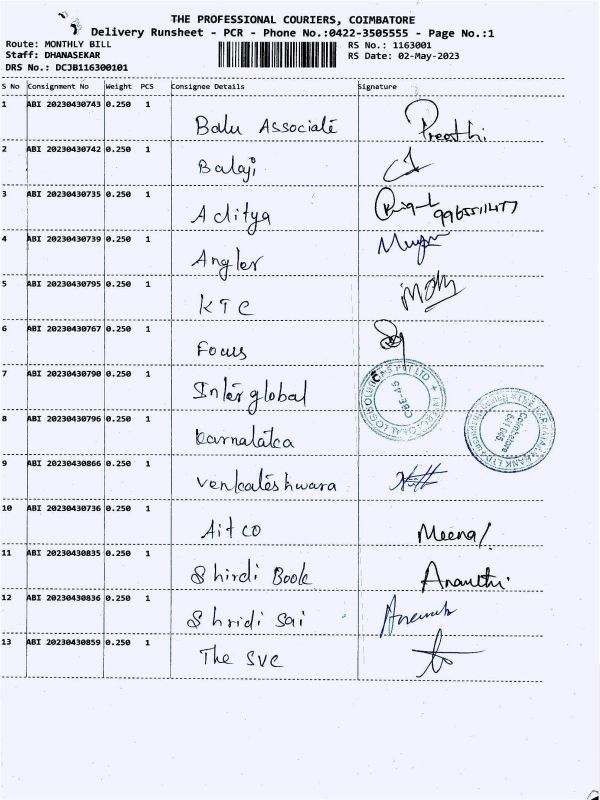 THE PROFESSIONAL COURIERS, COIMBATORE
Delivery Runsheet - PCR - Phone No.:0422-3505555 - Page No.:1
Route: MONTHLY BILL RS No.: 1163001
Staff: DHANASEKAR RS Date: 02-May-2023
DRS No.: DCJB116300101
S No Consignment No Weight PCS Consignee Details Signature
1 ABI 20230430743 0.250 1
Balu Associate Preethi
2 ABI 20230430742 0.250 1
Balaji
3 ABI 20230430735 0.250 1
Aditya
4 ABI 20230430739 0.250 1
Angler
5 ABI 20230430795 0.250 1
KTC
6 ABI 20230430767 0.250 1
Focus
7 ABI 20230430790 0.250 1
Interglobal CBE-45
8 ABI 20230430796 0.250 1
Karnataka Coimbatore
9 ABI 20230430866 0.250 1
Venkateshwara
10 ABI 20230430736 0.250 1
Aitco Meena
11 ABI 20230430835 0.250 1
Shirdi Book Ananthi
12 ABI 20230430836 0.250 1
Shridi Sai
13 ABI 20230430859 0.250 1
The SVC